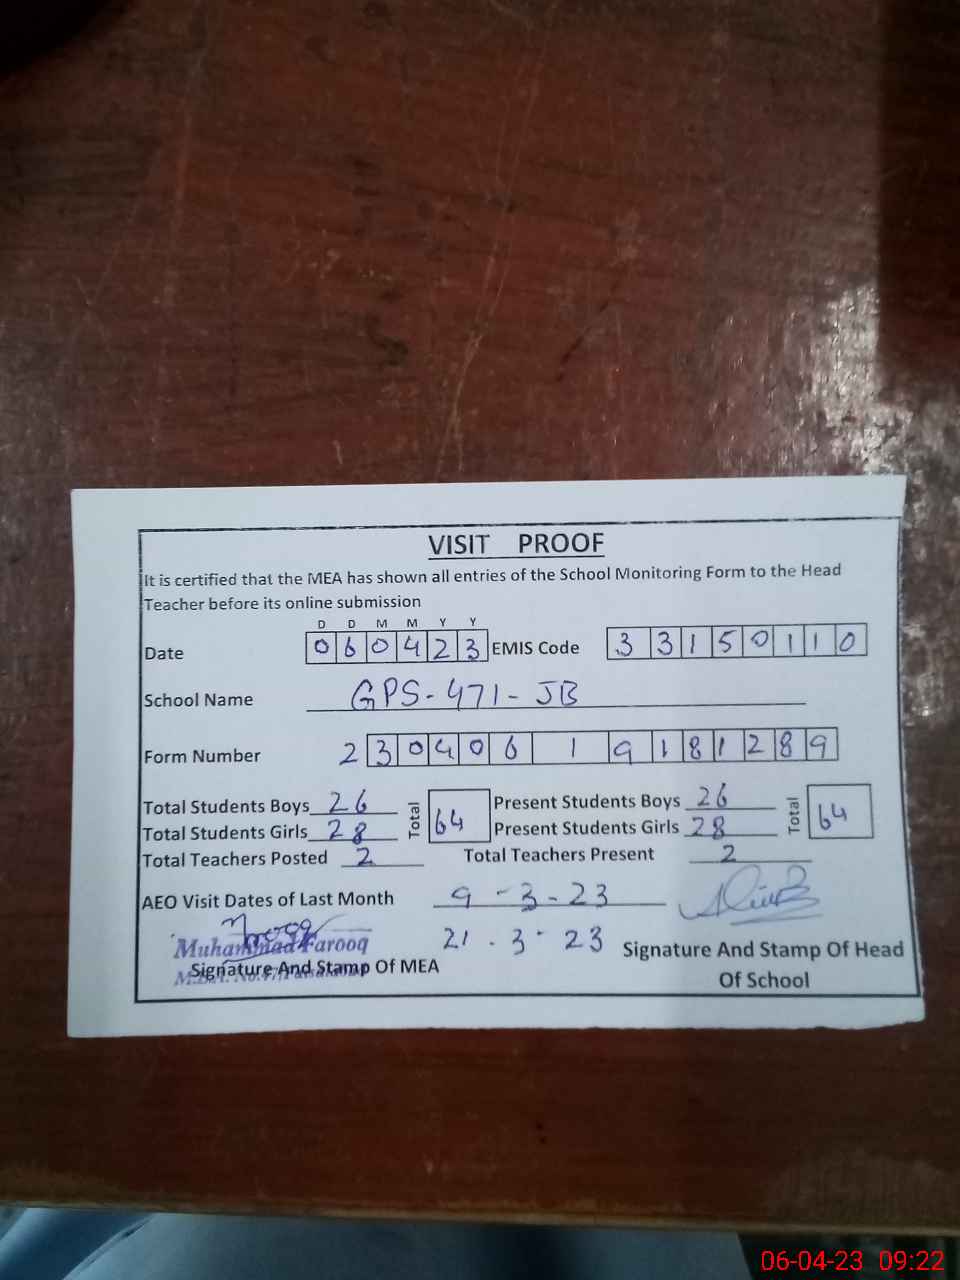 VISIT PROOF
It is certified that the MEA has shown all entries of the School Monitoring Form to the Head
Teacher before its online submission
D D M M Y Y
Date 0 6 0 4 2 3 EMIS Code 3 3 1 5 0 1 1 0
School Name GPS-471-JB
Form Number 2 3 0 4 0 6 1 9 1 8 1 2 8 9
Total Students Boys 26 Total 64 Present Students Boys 26 Total 64
Total Students Girls 28 Present Students Girls 28
Total Teachers Posted 2 Total Teachers Present 2
AEO Visit Dates of Last Month 9-3-23
21.3-23
Muhammad Farooq
Signature And Stamp Of MEA
Signature And Stamp Of Head
Of School
06-04-23 09:22